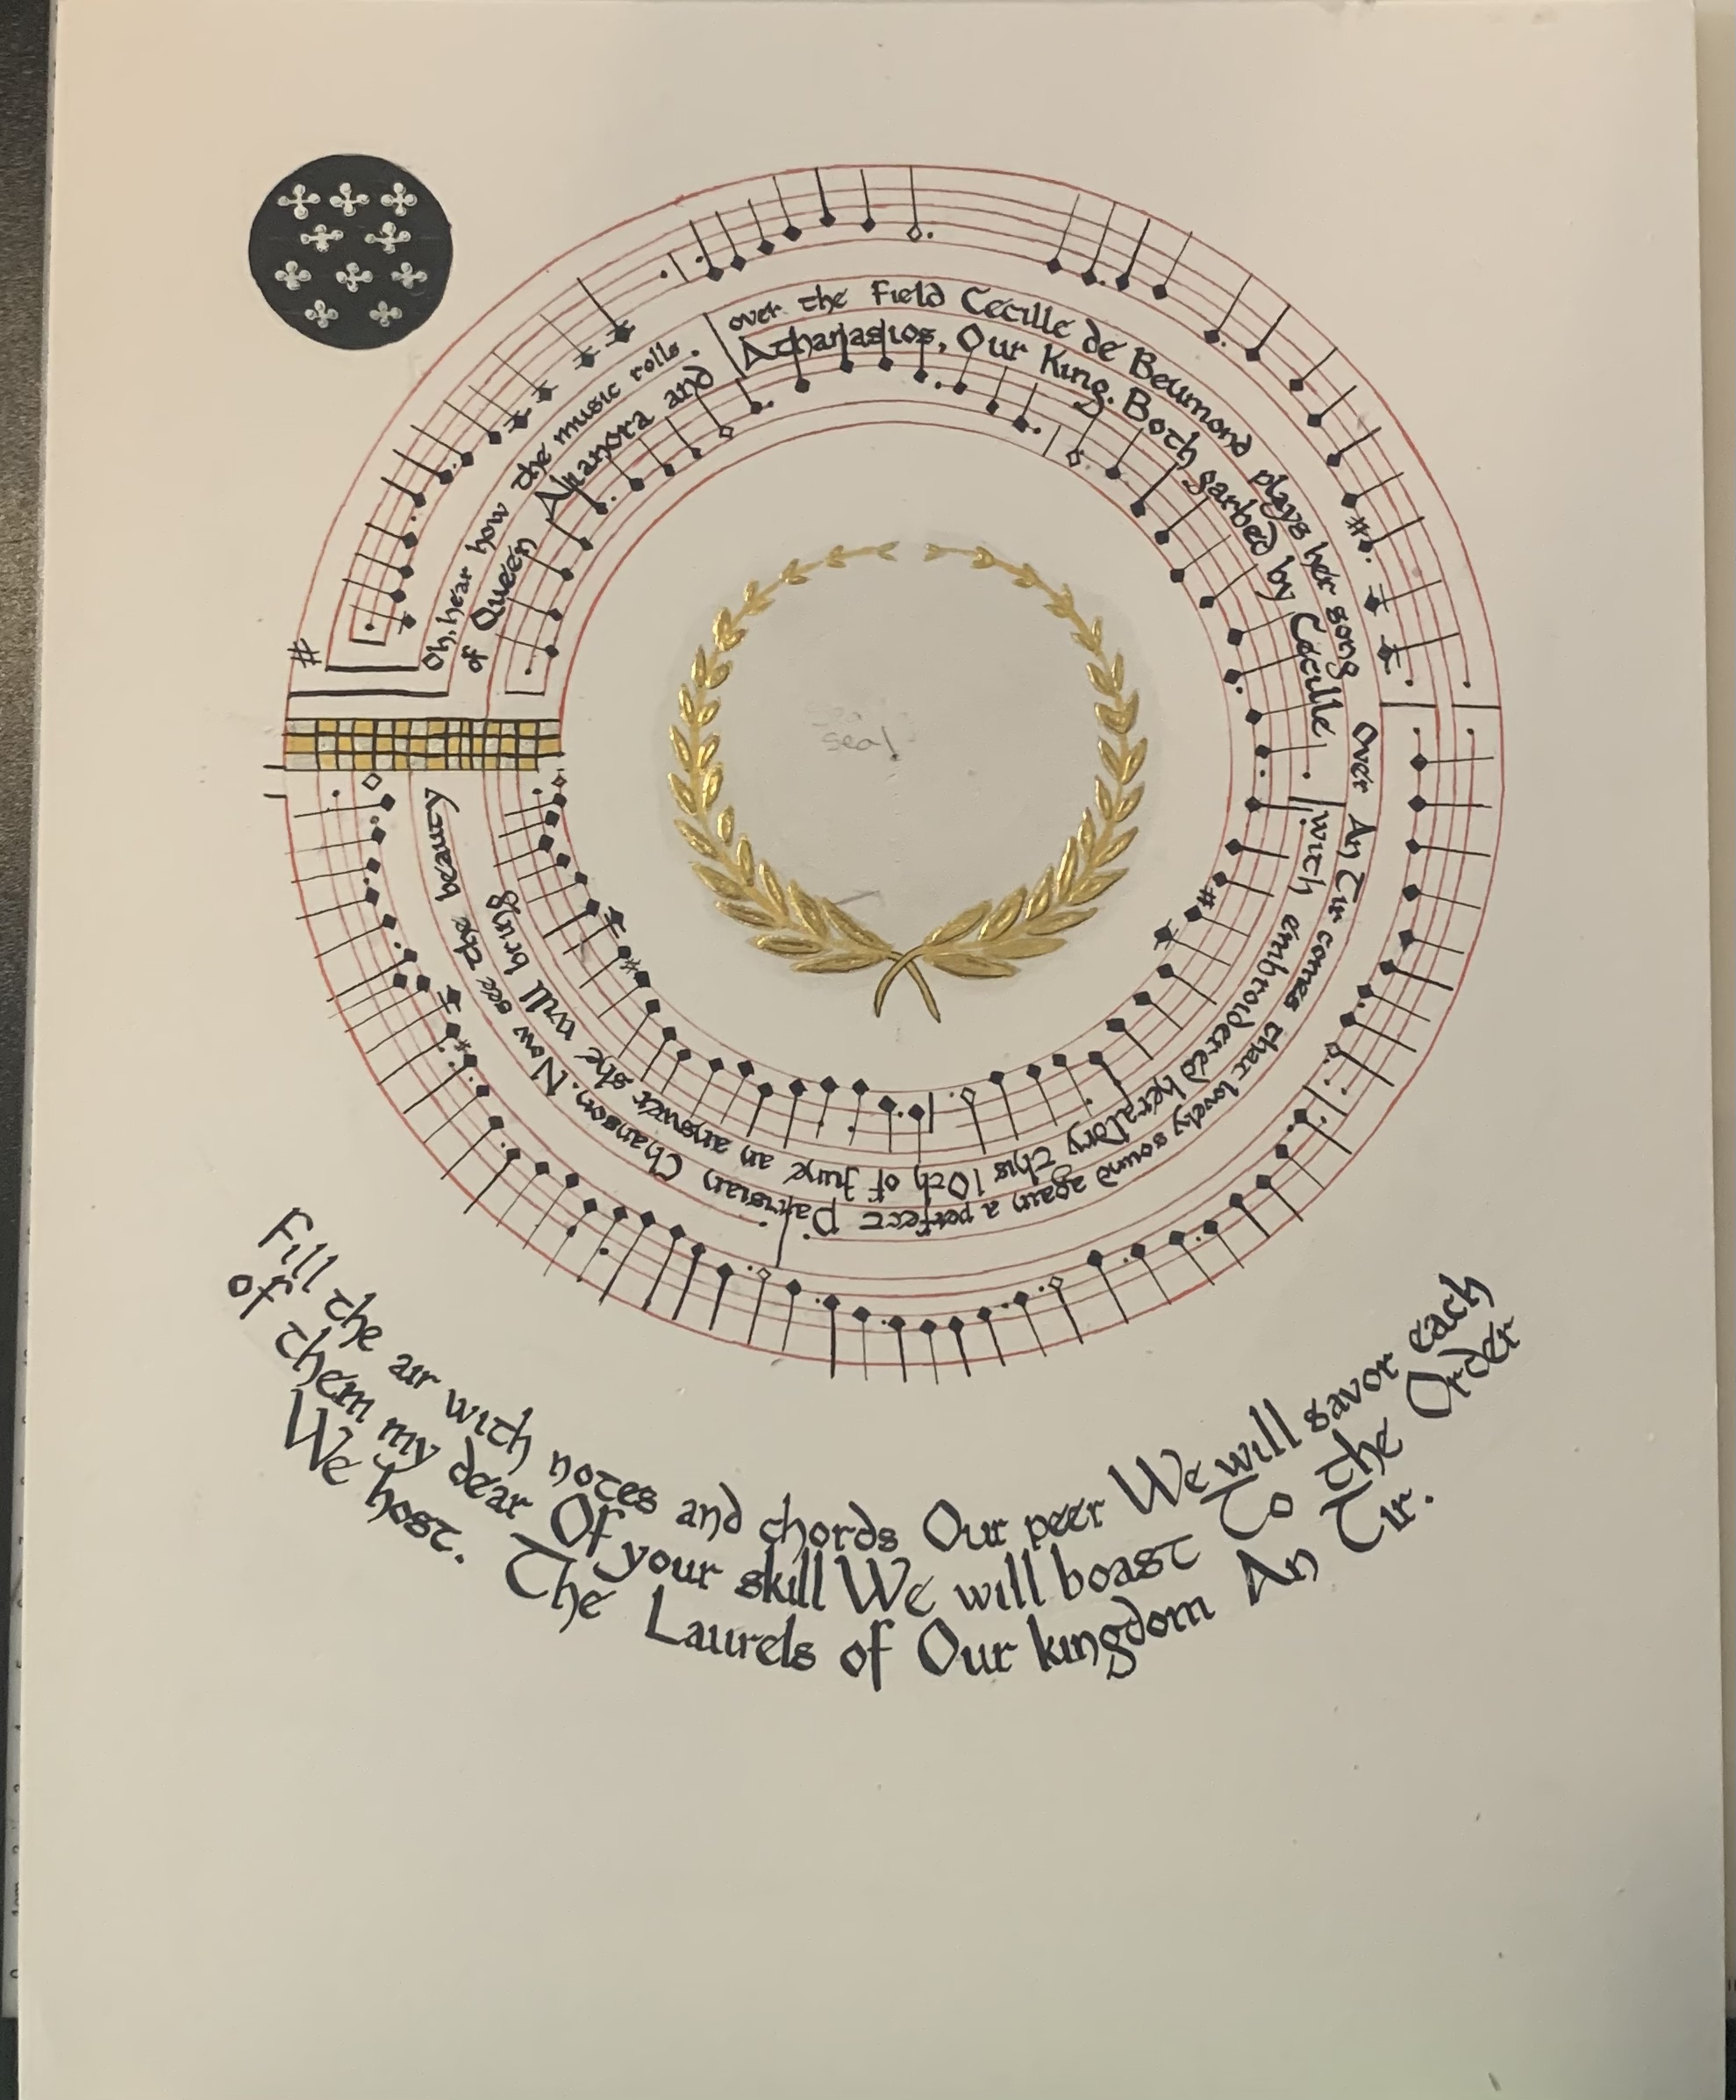 Oh, hear how the music rolls. over the Field Cecille de Beumond plays her song Over An Tir comes that lovely sound again a perfect Parisian Chanson. Now see the beauty
of Queen Alianora and Athanasios, Our King. Both garbed by Cecille with embroidered heraldry this 10th of June an answer she will bring
seal
Fill the air with notes and chords Our peer We will savor each
of them my dear Of your skill We will boast To the Order
We host. The Laurels of Our kingdom An Tir.